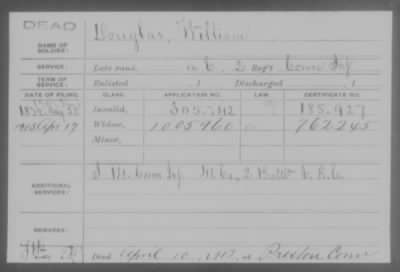 DEAD
NAME OF SOLDIER: Douglas, William
SERVICE: Late rank, Co. C, 2 Reg't Conn Inf
TERM OF SERVICE: Enlisted , 1 Discharged , 1
DATE OF FILING. CLASS. APPLICATION NO. LAW. CERTIFICATE NO.
Invalid, 305.742 185.927
1913 Apr 17 Widow, 1005960 762245
Minor,
ADDITIONAL SERVICES: Conn Inf
REMARKS:
Died April 10, 1913, at Preston Conn